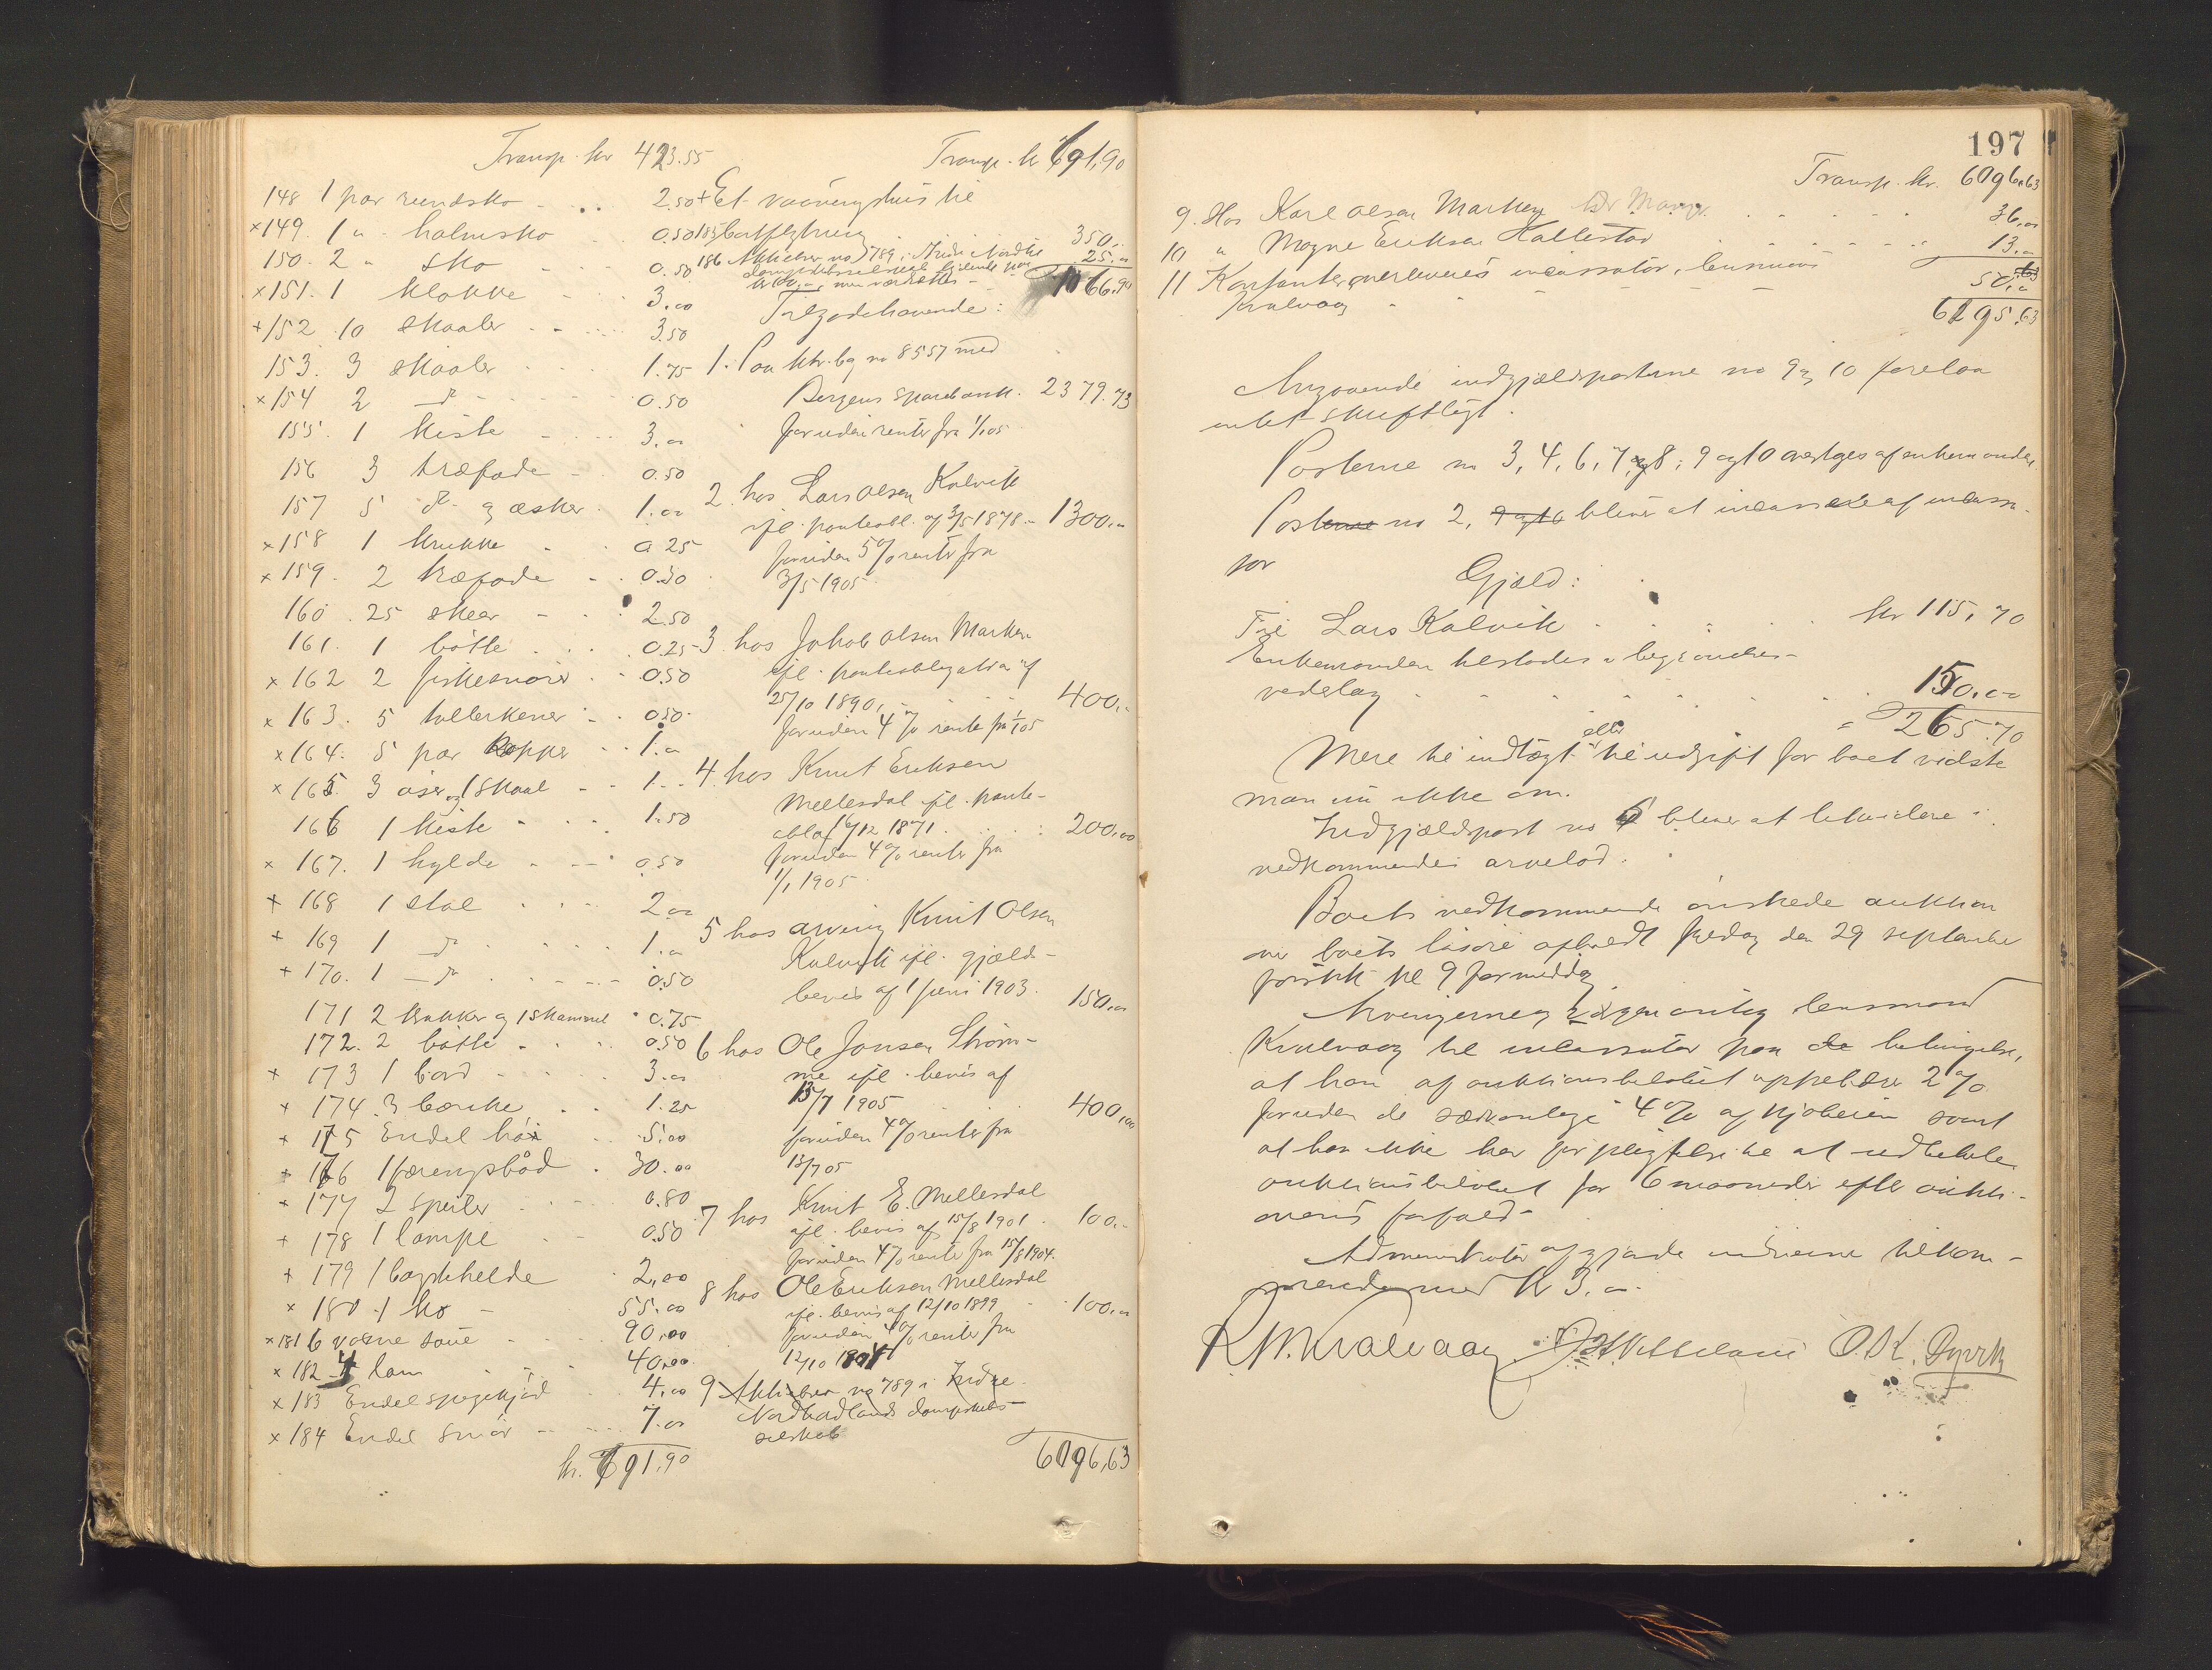 Transp. kr 423.55
148 1 par rundsko - 2.50
×149. 1 " halmsko 0.50
150. 2 " sko 0.50
×151. 1 klokke 3.00
+152 10 skaaler 3.50
153. 3 skaaler 1.75
×154 2 do 0.50
155. 1 kiste 3.00
156 3 træfade 0.50
157 5 do og æsker 1.00
×158 1 krukke 0.25
×159. 2 træfade 0.30
160. 25 skeer 2.50
161. 1 bøtte 0.25
×162 2 fiskesnører 0.50
×163. 5 tallerkener 0.50
×164. 5 par kopper 1.00
×165. 3 øser og 1 skaal 1.-
166 1 kiste 1.50
×167. 1 hylde 0.50
+168 1 stol 2.00
+169 1 do 1.00
+170. 1 do 0.50
171 2 krakker og 1 skammel 0.75
172. 2 bøtte 0.50
×173 1 bord 3.00
+174. 3 bænke 1.25
+175 Endel høi 5.00
+176 1 færingsbåd 30.00
+177 2 speiler 0.80
+178 1 lampe 0.50
+179 1 bagstehelde 2,00
×180 1 ko 55.00
×181 6 voksne souer 90,00
×182 4 lam 40,00
×183 Endel spegekjød 4,00
×184 Endel smør 7.00
kr. 691.90
Transp. kr 691,90
+ Et vaaningshus til
185 bortflytning 350.-
186 Aktiebrev no 789 i Indre Nordhl.
dampskibsselskab lydende paa
kr 100,- 25.00
1066.90
Tilgodehavende:
1. Paa ktr. bg no 8557 med
Bergens sparebank. 2379.73
foruden renter fra 1/1 05
2. hos Lars Olsen Kalvik
ifl. panteobl. af 3/5 1878 - 1300,00
foruden 5% renter fra
3/5 1905
3 hos Jakob Olsen Marken
ifl. panteobligation af
25/10 1890, 400,-
foruden 4% rente fra 1/1 05
4. hos Knut Eriksen
Mellesdal ifl. pante-
obl af 16/12 1871 200,00
foruden 4% renter fra
1/1 1905
5 hos arving Knut Olsen
Kalvik ifl. gjælds-
bevis af 1 juni 1903. 150.00
6 hos Ole Jonsen Strøm-
me ifl. bevis af
13/7 1905 400,00
foruden 4% renter fra
13/7 05
7 hos Knut E. Mellesdal
ifl. bevis af 15/8 1901 100.-
foruden 4% renter fra 15/8 1904.
8 hos Ole Eriksen Mellesdal
ifl. bevis af 12/10 1899 100.00
foruden 4% renter fra
12/10 1904
9 Aktiebrev no 789 i Indre
Nordhordlands dampskibs-
selskab
6096,63
197
Transp. kr. 6096,63
9. Hos Karl Olsen Marken 36,00
10 " Mogne Eriksen Hallestad 13.00
11 Kontanter overleveres incassator, lensmand
Kvalvaag 50,00
6195.63
Angaaende indgjældsposterne no 9 og 10 forelaa
intet skriftligt.
Posterne no 3, 4, 6, 7, og 8, 9 og 10 overtages af enkemanden.
Posterne no 2, 9 og 10 bliver at incassere af incassa-
tor
Gjæld:
Til Lars Kalvik kr 115,70
Enkemanden tilstodes i begravelses-
vederlag 150.00
265.70
Mere til indtægt eller til udgift for boet vidste
man nu ikke om.
Indgjældspost no 5 bliver at likvidere i
vedkommendes arvelod.
Boets vedkommende ønskede auktion
over boets løsøre afholdt fredag den 29 september
førstk. kl 9 formiddag
Arvingerne lensmand
Kvalvaag til incassator paa de betingelser,
at han af auktionsbeløbet oppebærer 2%
foruden de sædvanlige 4% af kjøberen samt
at han ikke har forpligtelse til at udbetale
auktionsbeløbet før 6 maaneder efter aukti-
onens forfald.
Administrator afgjorde vidnerne tilkom-
mende med kr 3.00
R. M. Kvalvaag O. K. Dyrvik